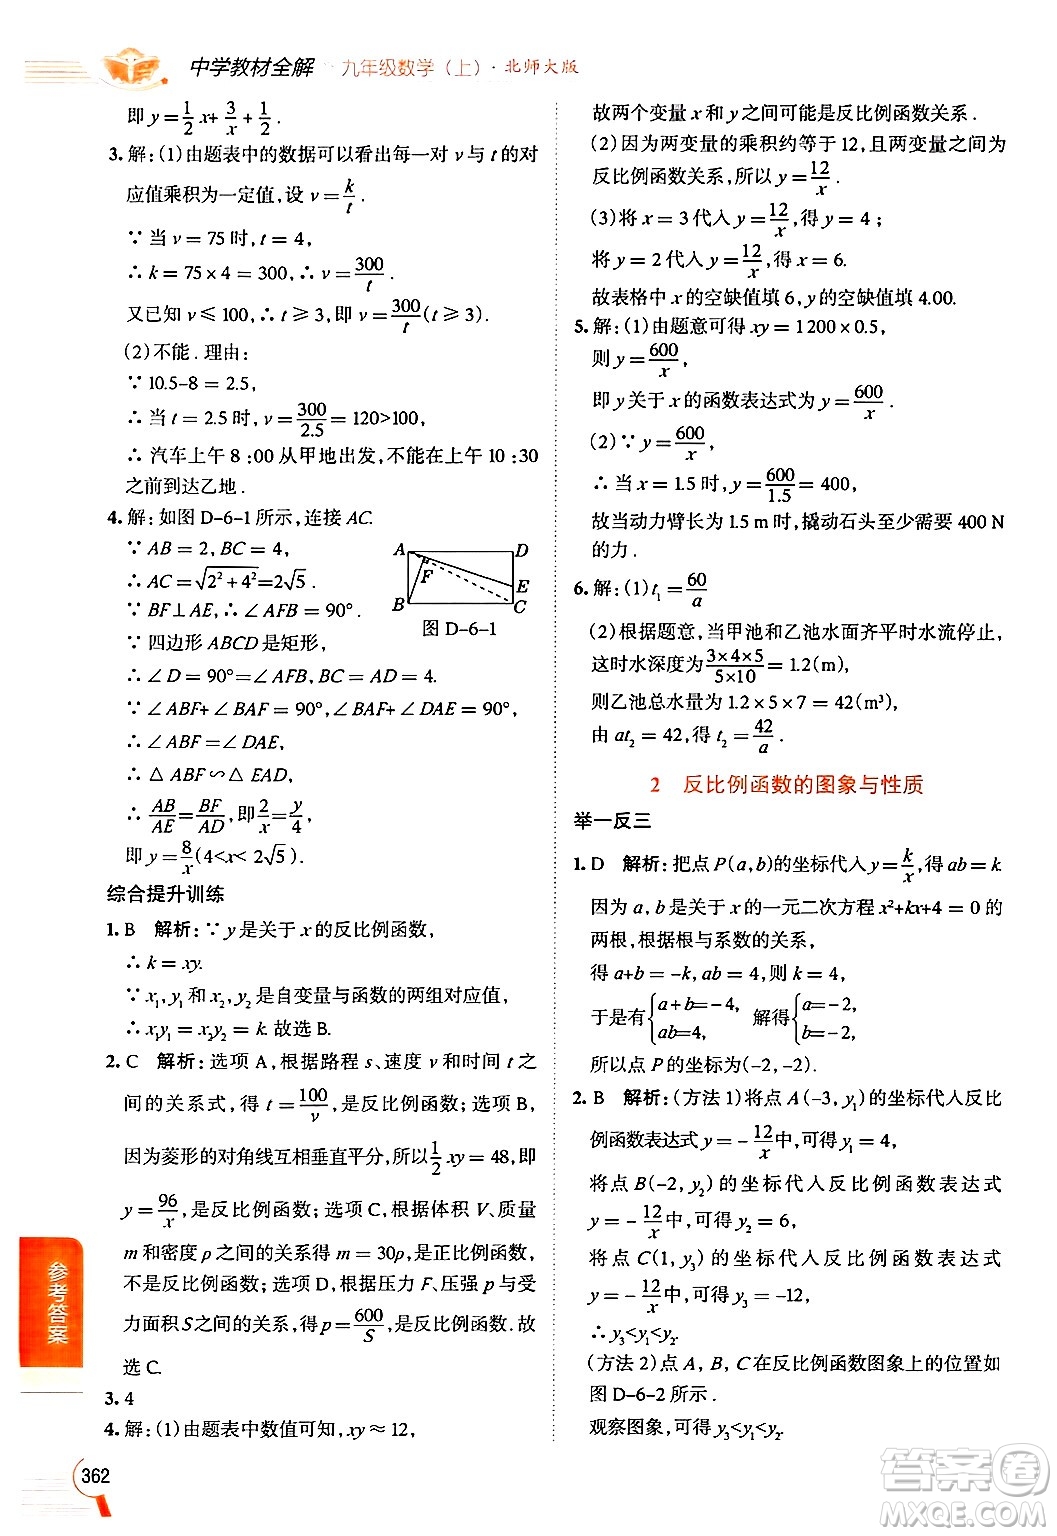 中学教材全解 九年级数学(上)·北师大版
即 y = 1/2 x + 3/x + 1/2 .
3. 解:(1)由题表中的数据可以看出每一对 v 与 t 的对
应值乘积为一定值,设 v = k/t .
∵ 当 v = 75 时, t = 4,
∴ k = 75 × 4 = 300, ∴ v = 300/t .
又已知 v ⩽ 100, ∴ t ⩾ 3, 即 v = 300/t ( t ⩾ 3).
(2)不能 . 理由:
∵ 10.5–8 = 2.5,
∴ 当 t = 2.5 时, v = 300/2.5 = 120>100,
∴ 汽车上午 8 :00 从甲地出发,不能在上午 10 :30
之前到达乙地 .
4. 解:如图 D–6–1 所示,连接 AC.
∵ AB = 2, BC = 4,
∴ AC = √(2² + 4²) = 2√5 .
∵ BF⊥AE, ∴ ∠AFB = 90°.
∵ 四边形 ABCD 是矩形,
∴ ∠D = 90°=∠BAD, AD = BC = 4.
∵ ∠ABF+∠BAF = 90°, ∠BAF+∠DAE = 90°,
∴ ∠ABF =∠DAE,
∴ △ABF∽△EAD,
∴ AB/AE = BF/AD, 即 2/x = y/4,
即 y = 8/x (4<x< 2√5).
A
D
F
E
B
C
图 D–6–1
综合提升训练
1. B 解析: ∵ y 是关于 x 的反比例函数,
∴ k = xy.
∵ x₁, y₁ 和 x₂, y₂ 是自变量与函数的两组对应值,
∴ x₁y₁ = x₂y₂ = k. 故选 B.
2. C 解析:选项 A,根据路程 s、速度 v 和时间 t 之
间的关系式,得 t = 100/v ,是反比例函数;选项 B,
因为菱形的对角线互相垂直平分,所以 1/2 xy = 48,即
y = 96/x ,是反比例函数;选项 C,根据体积 V、质量
m 和密度 ρ 之间的关系得 m = 30ρ,是正比例函数,
不是反比例函数;选项 D,根据压力 F、压强 p 与受
力面积 S 之间的关系,得 p = 600/S ,是反比例函数. 故
选 C.
3. 4
4. 解:(1)由题表中数值可知, xy ≈ 12,
故两个变量 x 和 y 之间可能是反比例函数关系 .
(2)因为两变量的乘积约等于 12,且两变量间为
反比例函数关系,所以 y = 12/x .
(3)将 x = 3 代入 y = 12/x ,得 y = 4 ;
将 y = 2 代入 y = 12/x ,得 x = 6.
故表格中 x 的空缺值填 6, y 的空缺值填 4.00.
5. 解:(1)由题意可得 xy = 1 200 × 0.5,
则 y = 600/x ,
即 y 关于 x 的函数表达式为 y = 600/x .
(2) ∵ y = 600/x ,
∴ 当 x = 1.5 时, y = 600/1.5 = 400,
故当动力臂长为 1.5 m 时,撬动石头至少需要 400 N
的力 .
6. 解:(1) t₁ = 60/a
(2)根据题意,当甲池和乙池水面齐平时水流停止,
这时水深度为 3×4×5/5×10 = 1.2(m),
则乙池总水量为 1.2 × 5 × 7 = 42 (m³),
由 at₂ = 42,得 t₂ = 42/a .
2 反比例函数的图象与性质
举一反三
1. D 解析:把点 P (a, b) 的坐标代入 y = k/x ,得 ab = k.
因为 a, b 是关于 x 的一元二次方程 x²+kx+4 = 0 的
两根,根据根与系数的关系,
得 a+b = –k, ab = 4,则 k = 4,
于是有 { a+b=–4, ab=4, 解得 { a=–2, b=–2,
所以点 P 的坐标为(–2, –2).
2. B 解析:(方法 1)将点 A (–3, y₁) 的坐标代入反比
例函数表达式 y = – 12/x 中,可得 y₁ = 4,
将点 B(–2, y₂) 的坐标代入反比例函数表达式
y = – 12/x 中,可得 y₂ = 6,
将点 C(1, y₃) 的坐标代入反比例函数表达式
y = – 12/x 中,可得 y₃ = –12,
∴ y₃<y₁<y₂.
(方法 2)点 A, B, C 在反比例函数图象上的位置如
图 D–6–2 所示 .
观察图象,可得 y₃<y₁<y₂.
参考答案
362
答案圈
MXQE.COM